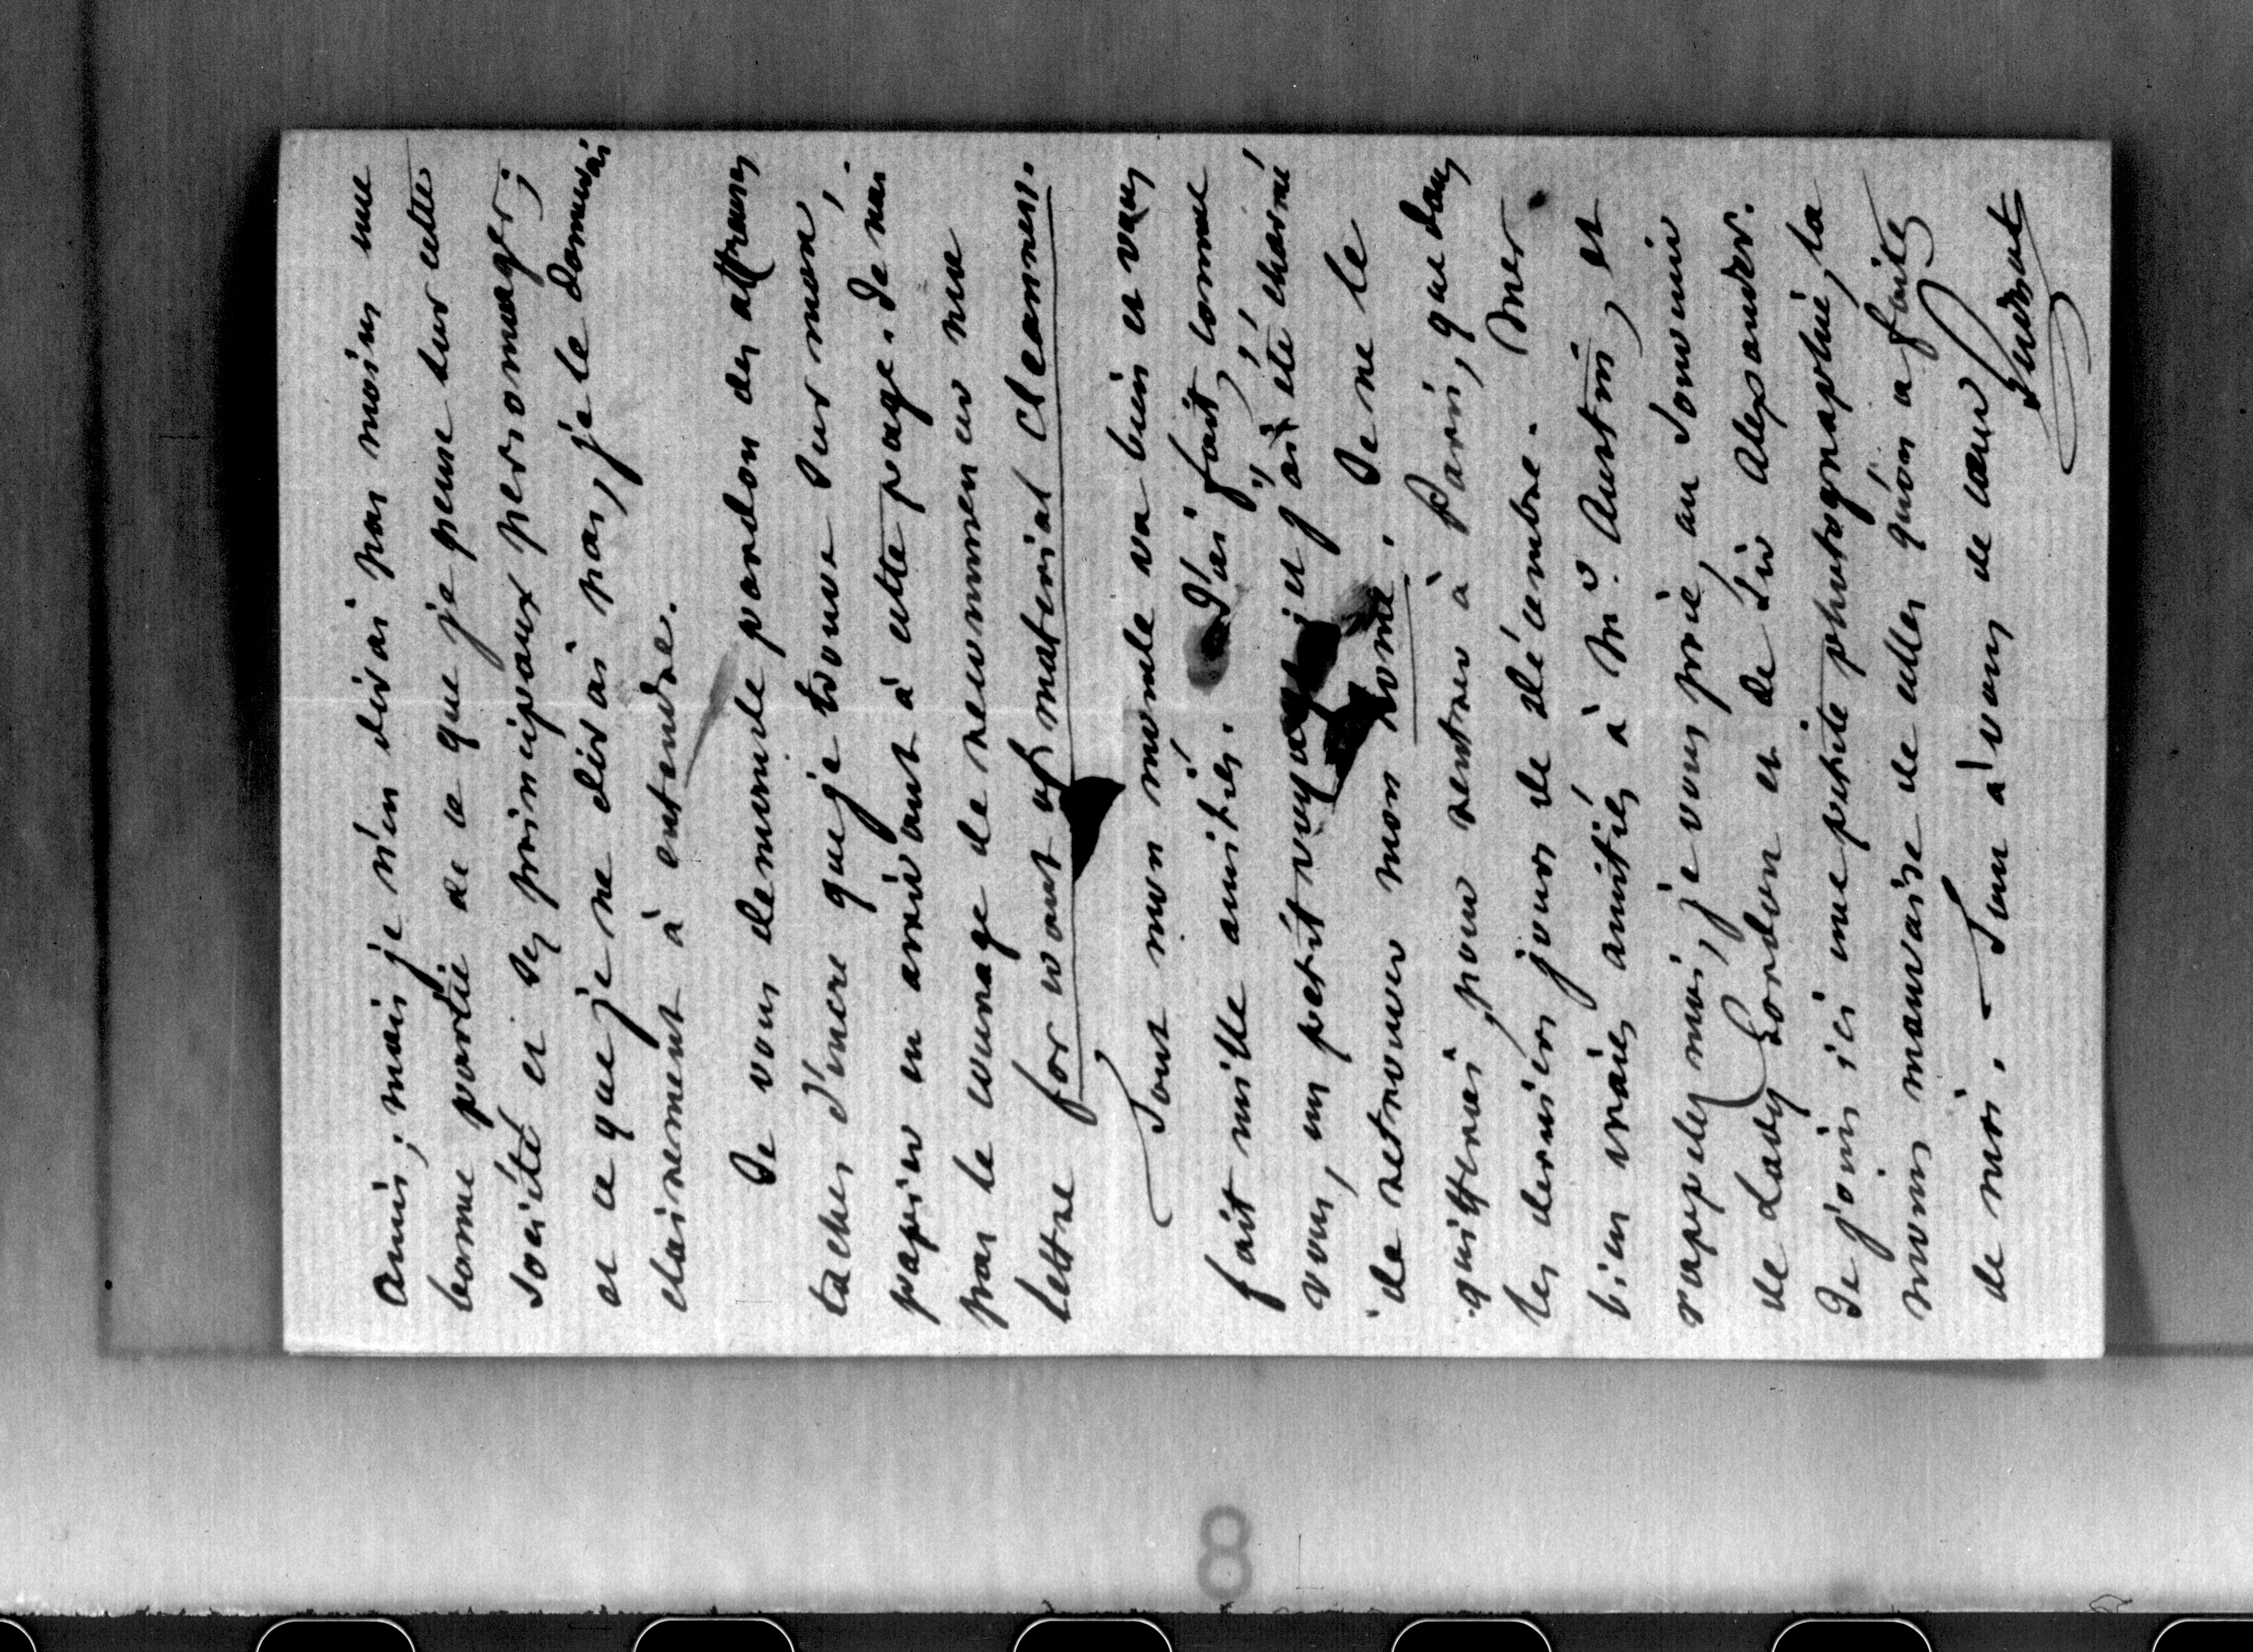 amis ; mais je n'en dirai pas moins une
bonne partie de ce que je pense sur cette
société et ses principaux personnages ;
et ce que je ne dirai pas, je le donnerai
clairement à entendre.
Je vous demande pardon des affreuses
taches d'encre que je trouve sur mon
papier en arrivant à cette page. Je n'ai
pas le courage de recommencer ma
lettre for want of material cleanness.
Tout mon monde va bien et vous
fait mille amitiés. J'ai fait, comme
vous, un petit voyage, et j'ai été charmé
de retrouver mon home. Je ne le
quitterai, pour rentrer à Paris, que dans
les derniers jours de décembre. Mes
bien vraies amitiés à Mr. Austin, et
rappelez moi, je vous prie, au souvenir
de Lady Gordon et de Sir Alexander.
Je joins ici une petite photographie, la
moins mauvaise de celles qu'on a faites
de moi. Tout à vous de coeur
Guizot
8